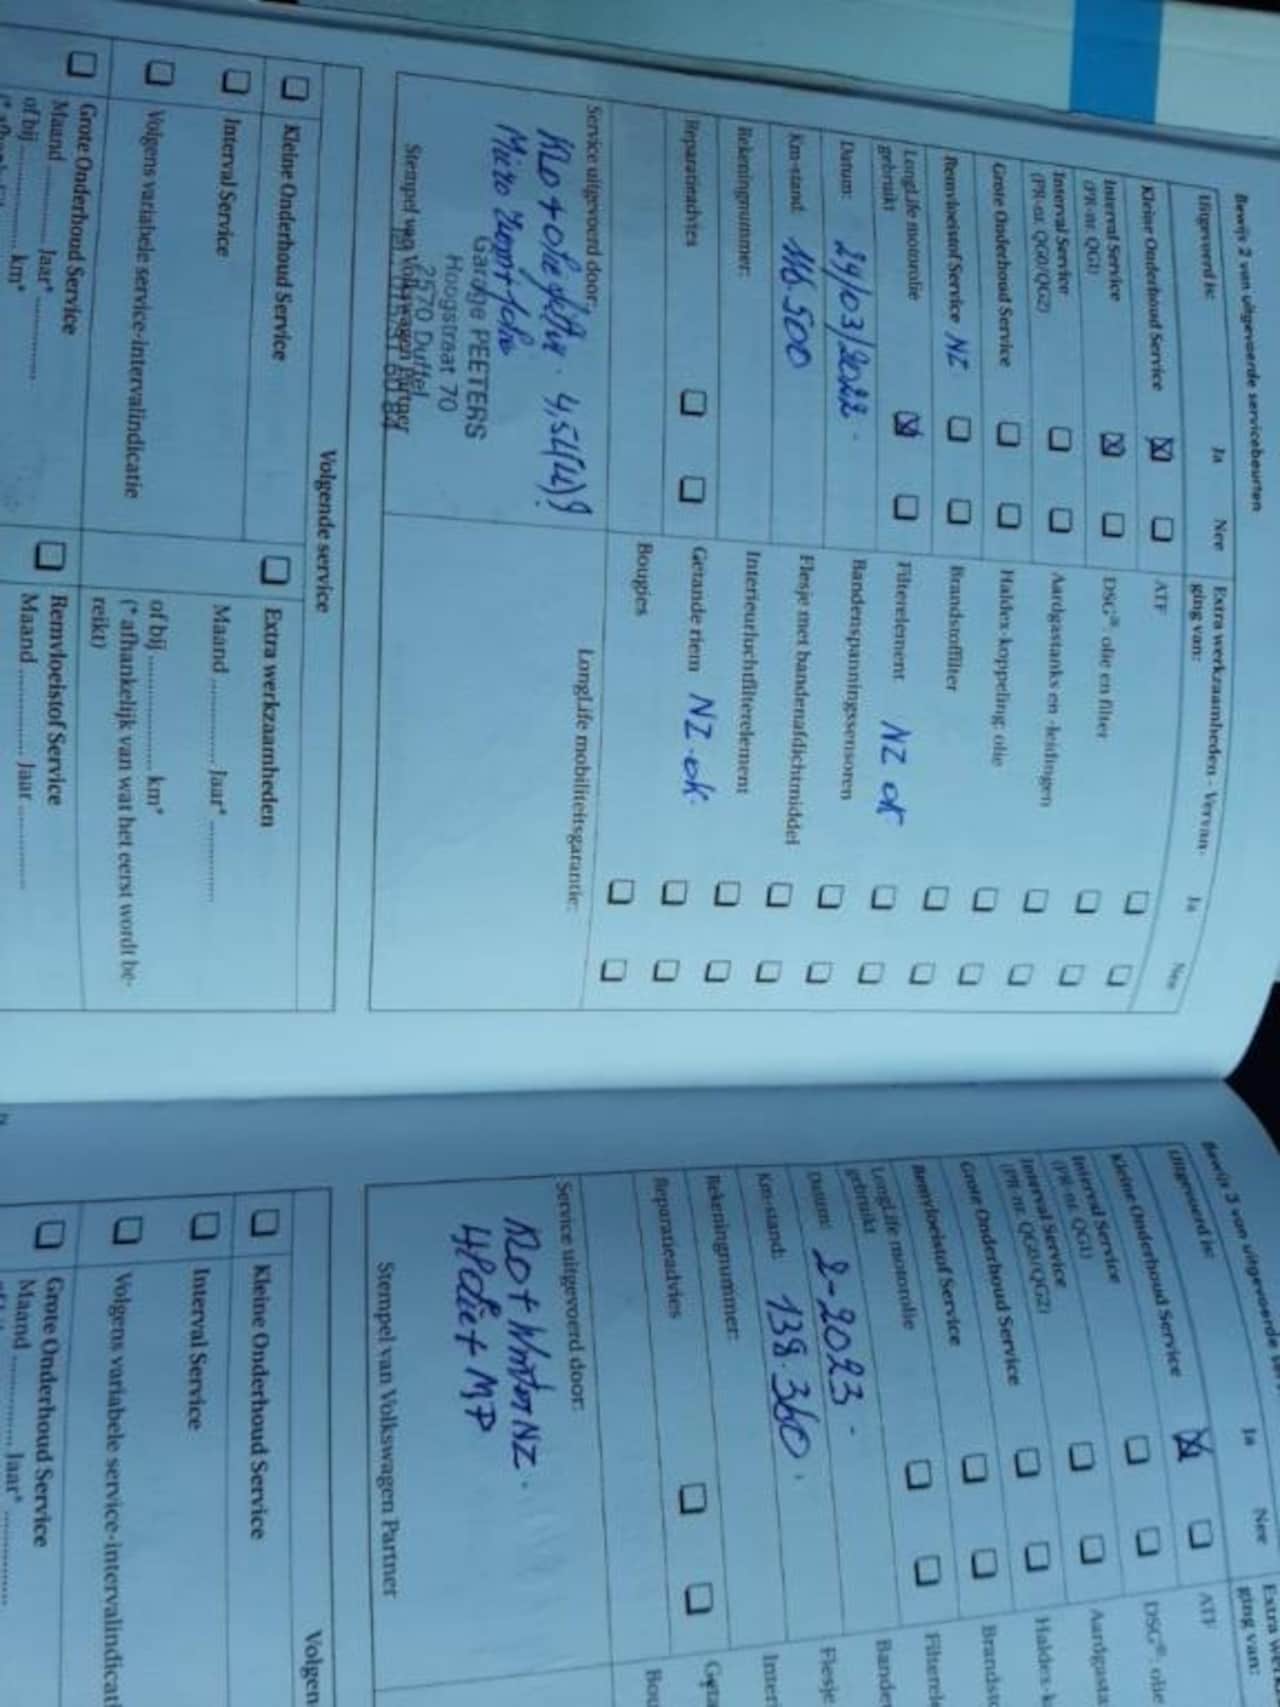 Bewijs 2 van uitgevoerde servicebeurten
Uitgevoerd is: Ja Nee
Kleine Onderhoud Service
Interval Service
(PR-nr. QG1)
Interval Service
(PR-nr. QG0/QG2)
Grote Onderhoud Service
Remvloeistof Service NZ
LongLife motorolie
gebruikt
Datum: 24/03/2022.
Km-stand: 116.500
Rekeningnummer:
Reparatieadvies
Service uitgevoerd door:
Micro
Garage PEETERS
Hoogstraat 70
2570 Duffel
Stempel van Volkswagen Partner
Extra werkzaamheden - Vervan-
ging van: Ja Nee
ATF
DSG®: olie en filter
Aardgastanks en -leidingen
Haldex-koppeling: olie
Brandstoffilter
Filterelement NZ OK
Bandenspanningssensoren
Flesje met bandenafdichtmiddel
Interieurluchtfilterelement
Getande riem NZ-OK.
Bougies
LongLife mobiliteitsgarantie:
Volgende service
Kleine Onderhoud Service
Interval Service
Volgens variabele service-intervalindicatie
Grote Onderhoud Service
Maand ............ Jaar* ............
of bij ................ km*
Extra werkzaamheden
Maand ............ Jaar* ............
of bij ................ km*
(* afhankelijk van wat het eerst wordt be-
reikt)
Remvloeistof Service
Maand ............ Jaar ............
Bewijs 3 van uitgevoerde
Uitgevoerd is: Ja Nee
Kleine Onderhoud Service
Interval Service
(PR-nr. QG1)
Interval Service
(PR-nr. QG0/QG2)
Grote Onderhoud Service
Remvloeistof Service
LongLife motorolie
gebruikt
Datum: 2-2023.
Km-stand: 138.360.
Rekeningnummer:
Reparatieadvies
Service uitgevoerd door:
Stempel van Volkswagen Partner
ging van:
ATF
DSG®: olie
Volgen
Kleine Onderhoud Service
Interval Service
Volgens variabele service-intervalindicat
Grote Onderhoud Service
Maand ............ Jaar* ............